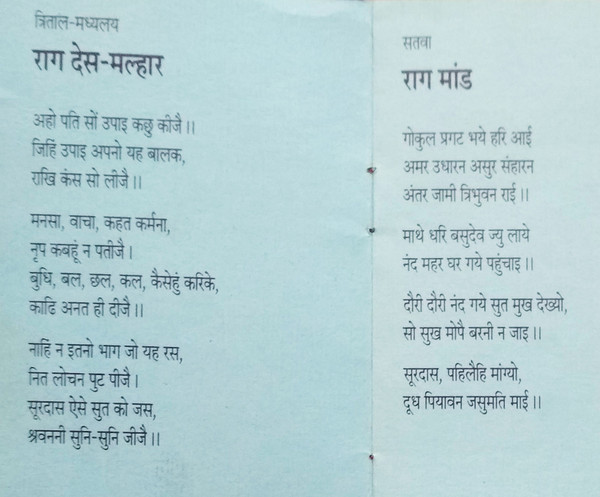 त्रिताल-मध्यलय
राग देस-मल्हार
अहो पति सों उपाइ कछु कीजै ।।
जिहिं उपाइ अपनो यह बालक,
राखि कंस सो लीजै ।।
मनसा, वाचा, कहत कर्मना,
नृप कबहूं न पतीजै ।
बुधि, बल, छल, कल, कैसेहुं करिके,
काढि अनत ही दीजै ।।
नाहिं न इतनो भाग जो यह रस,
नित लोचन पुट पीजै ।
सूरदास ऐसे सुत को जस,
श्रवननी सुनि-सुनि जीजै ।।
सतवा
राग मांड
गोकुल प्रगट भये हरि आई
अमर उधारन असुर संहारन
अंतर जामी त्रिभुवन राई ।।
माथे धरि बसुदेव ज्यु लाये
नंद महर घर गये पहुंचाइ ।।
दौरी दौरी नंद गये सुत मुख देख्यो,
सो सुख मोपै बरनी न जाइ ।।
सूरदास, पहिलैहि मांग्यो,
दूध पियावन जसुमति माई ।।